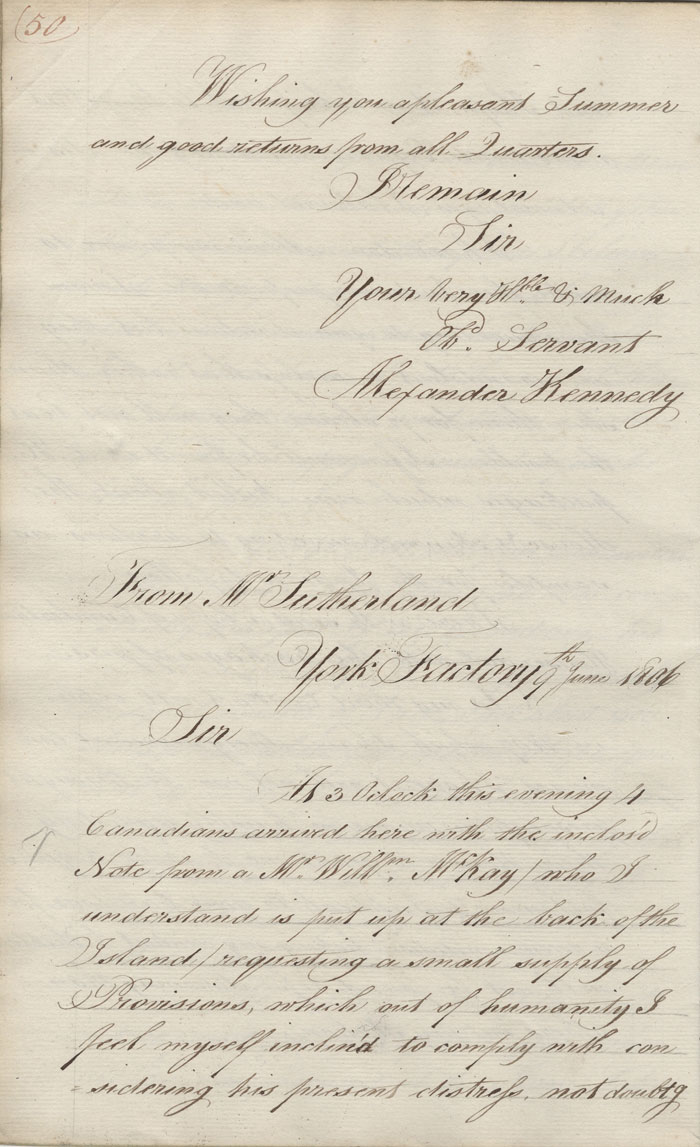 (50)
Wishing you a pleasant Summer
and good returns from all Quarters.
I Remain
Sir
Your very Hble & Much
Ob.d Servant
Alexander Kennedy
From Mr. Sutherland
York Factory 9th June 1806
Sir
At 3 Oclock this evening 4
Canadians arrived here with the inclos'd
Note from a Mr. Willm. McKay / who I
understand is put up at the back of the
Island / requesting a small supply of
Provisions, which out of humanity I
feel myself inclin'd to comply with con
=sidering his present distress, not doubtg